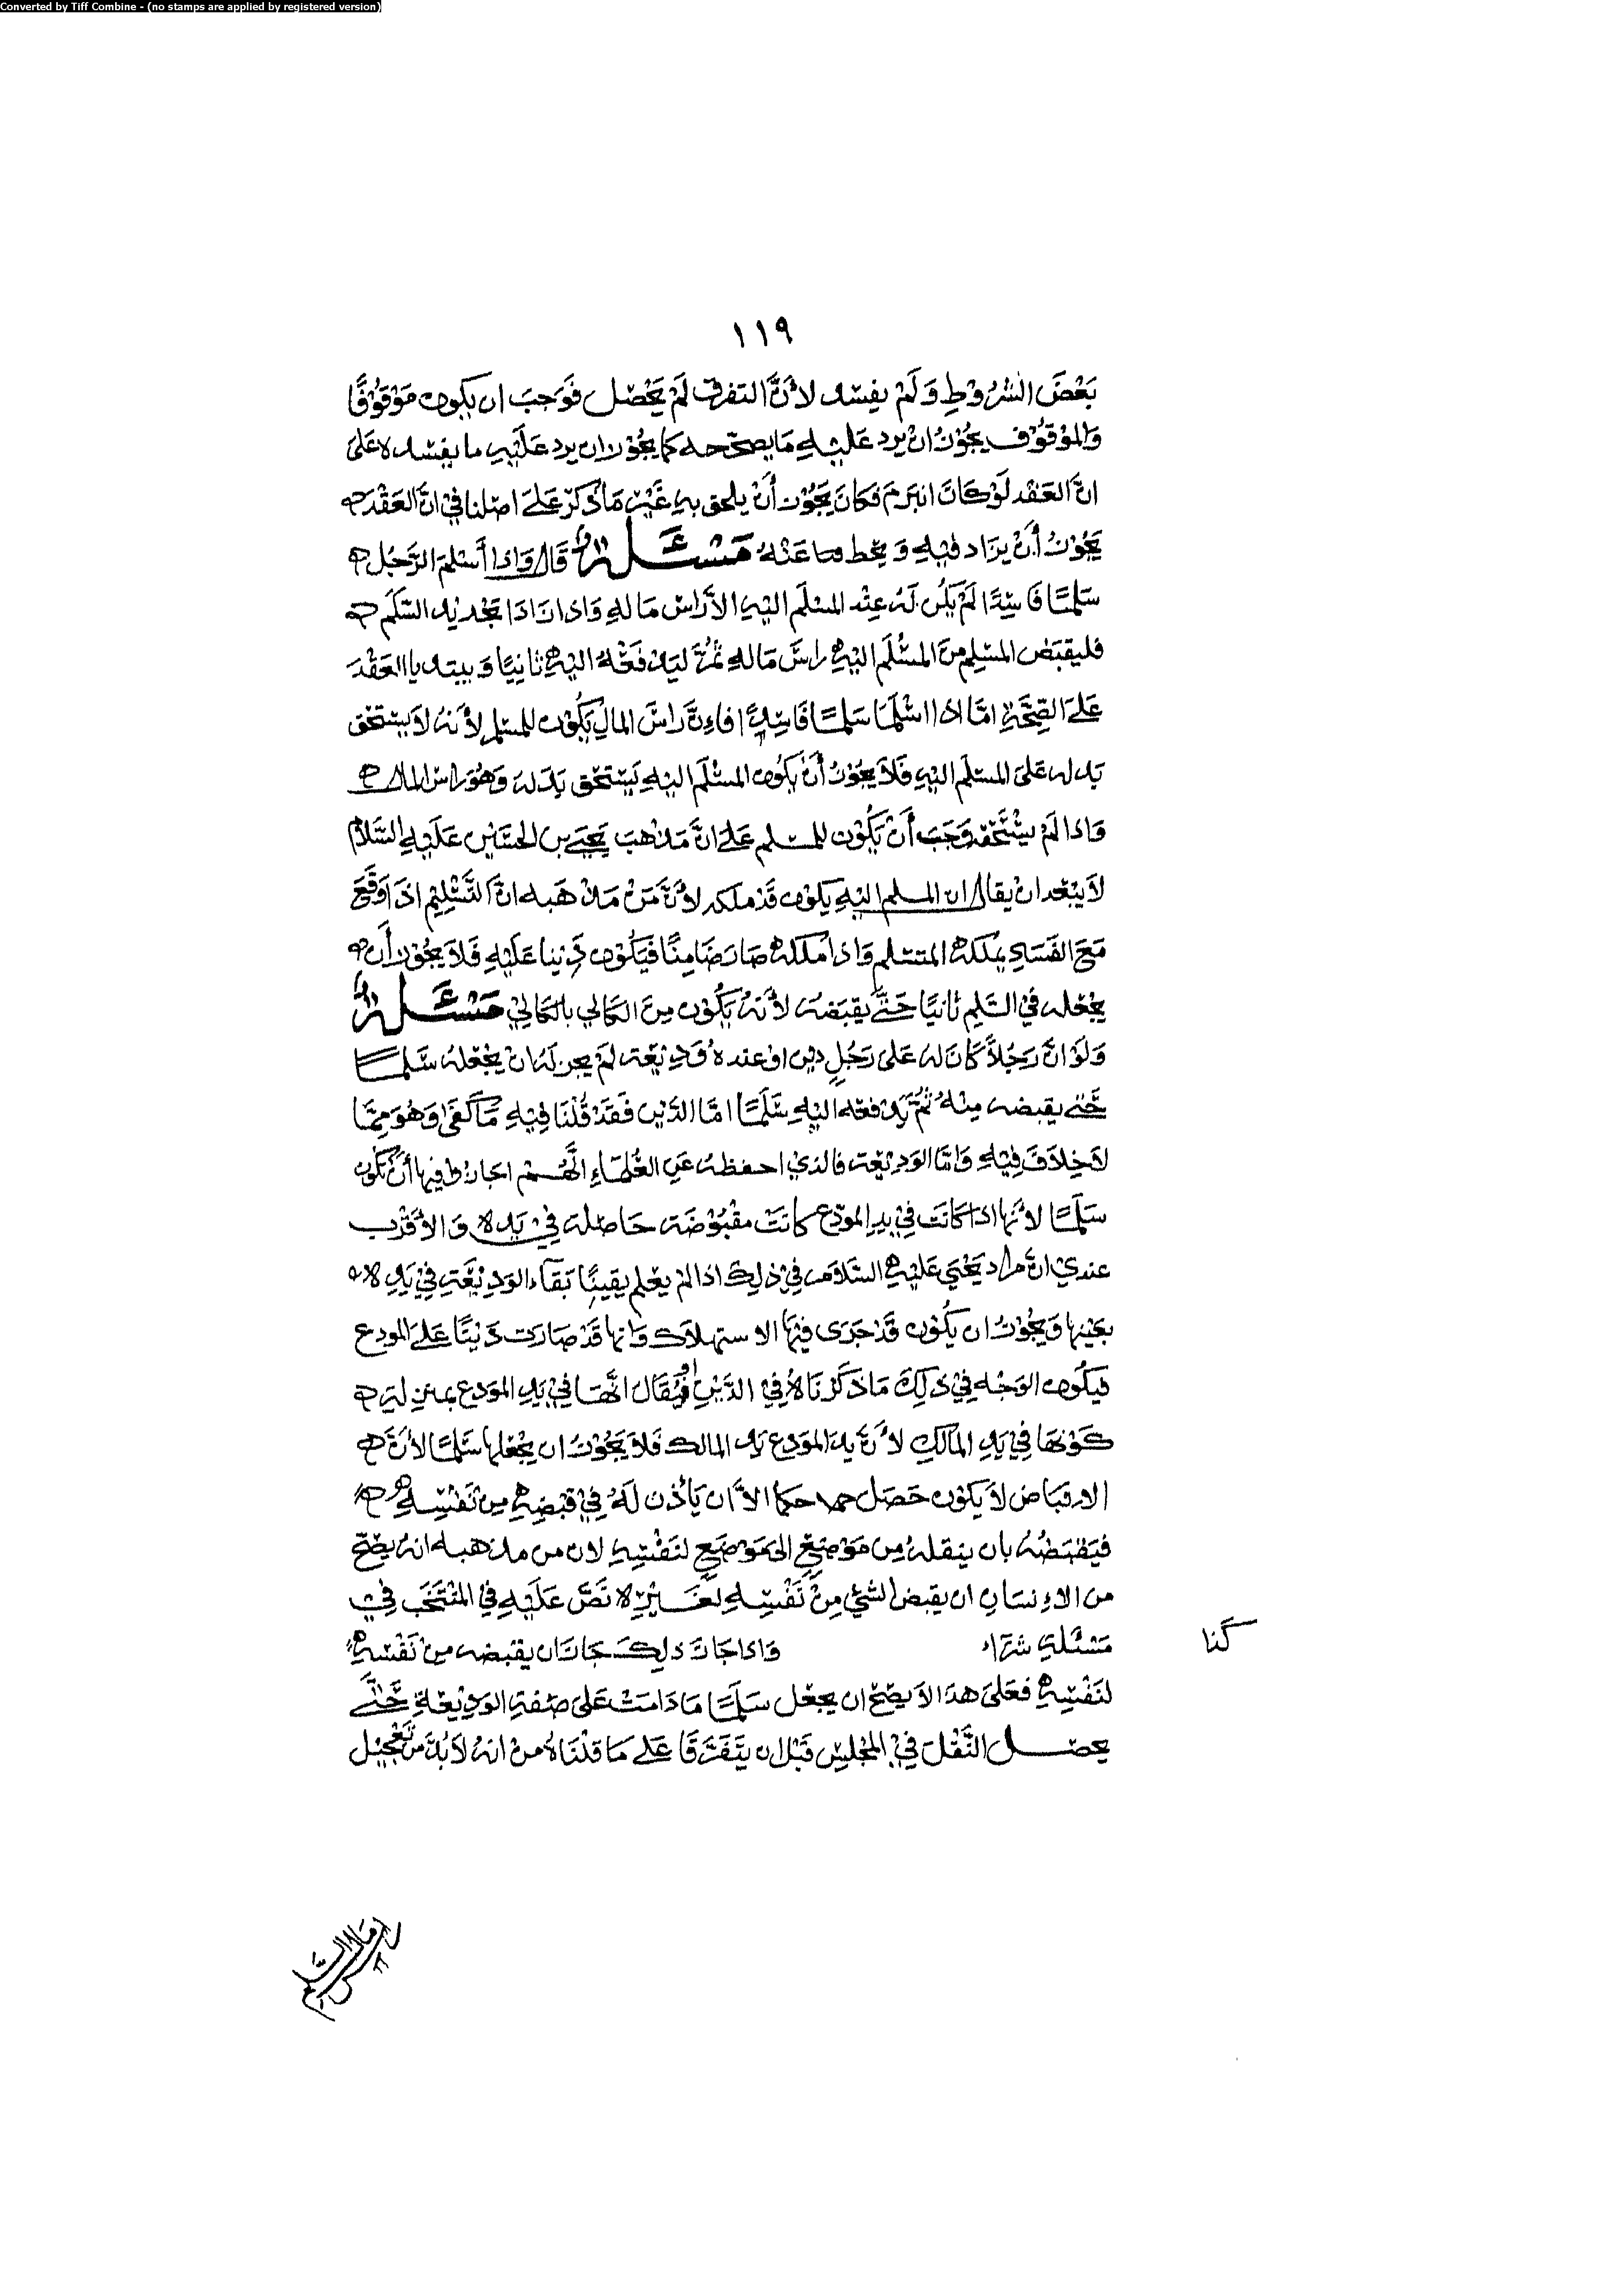 Converted by Tiff Combine - (no stamps are applied by registered version)
١١٩
بَعْضَ الشرُوْطِ وَلَمْ يفسد لأنَّ التفرق لَمْ يَحْصل فَوَجبَ ان يكون مَوْقوْفًا
وَالموْقوْف يجُوْزُ انْ يرد عَليْهِ مَا يصحّحه كما يجُوْز ان يرد عَلَيْهِ ما يفسده عَلىَ
انَّ العَقْد لَوْ كَانَ انبرَمَ فكانَ يَجُوْز أنْ يلحق بهِ غَيْر مَا ذُكرَ عَلىَ اصْلنا فيْ انَّ العَقْدَ
يَجُوْزُ أنْ يزَاد فيْهِ وَيحط عَنْهُ مَسْئَلة قَالَ وَاذا أسْلمَ الرَّجُل
سَلمًا فَاسِدًا لَمْ يكُن لَهُ عِنْد المسْلَم اليْهِ الاَّ رَاسْ مَالهِ وَاذا ارَادَا تجْديْد السَّلَم
فليقبَض المسْلِم مِنَ المسْلَم اليْهِ رَاسَ مَالهِ ثمَّ ليَدْفَعْهُ اليْهِ ثانِيًا وَيبتديا العَقْدَ
عَلىَ الصِّحَّةِ امَّا اذا اسْلمَا سَلمًا فَاسِدًا فاِنَّ رَاسَ المالِ يكُوْن للمسْلم لأنهُ لاَ يسْتحق
بَدله عَلىَ المسْلَم اليْهِ فَلاَ يجُوْزُ أنْ يكُون المسْلَم اليْهِ يَسْتحق بَدَله وَهُوَ راس المال
وَاذا لَمْ يسْتَحقّه وَجَبَ أنْ يَكُوْن للمسْلم عَلىَ انَّ مَذهَبَ يَحْيَى بن الحسَيْن عَلَيْهِ السَّلام
لاَ يبْعُد انْ يقال ان المسلم اليْهِ يكون قَدْ ملكه لأنَّ مِنْ مَذهَبه انَّ التَّسْليم اذَا وَقَعَ
مَعَ الفَسَادِ يملكهُ المتسَلم وَاذا مَلكهُ صَارَ ضَامِنًا فيَكُوْن دَيْنا عَليْهِ فَلاَ يجُوْز أن
يجْعَله فيْ السَّلم ثانيًا حَتَّى يقبَضه لأنهُ يَكُوْن مِنَ الكالي بالكالي مَسْئَلة
وَلَوْ انَّ رَجُلاً كانَ له عَلىَ رَجُلٍ دين اوْ عندهُ وَديْعَة لَمْ يجز لَهُ انْ يجْعَلهُ سَلمًا
حَتى يقبضه مِنْهُ ثُمَّ يدْفعه اليْهِ سَلَمًا امَّا الدَّيْن فَقَدْ قُلْنَا فِيْهِ مَا كفَى وَهُوَ مِمَّا
لاَ خِلاَفَ فِيْهِ وَامَّا الوَديْعَة فالذيْ احفظهُ عَنِ العُلمَاءِ انَّهُم اجازوا فيها أنْ تكُون
سَلمًا لأنها اذا كانَت فيْ يدِ المودَع كانَتْ مقْبُوْضَة حَاصلة فيْ يَدهِ وَالأقْرَب
عنديْ انَّ مرَاد يَحْيَى عَليْهِ السَّلاَم فيْ ذلِكَ اذا لمْ يعْلم يقيْنًا بَقَاء الوَديْعَةِ فيْ يَدِهِ
بعَيْنها وَيجُوْزُ ان يكُوْن قَدْ جَرَى فيْهَا الاستهلاك وَانها قَدْ صَارَت دَيْنًا عَلىَ المودع
فيكُون الوَجْه فيْ ذلِكَ مَا ذَكَرْنَاهُ فيْ الدَّيْنِ أوْ يُقَال انَّهَا فيْ يَدِ الموَدع بمنزلة
كَوْنهَا فيْ يَدِ المالِكِ لأنَّ يدَ الموْدَع يَد المالك فَلاَ يَجُوْزُ ان يجْعَلها سَلمًا لأنَّ
الاِقبَاض لاَ يكوْن حَصَل حكما الاَّ ان يَأذَن لَهُ فيْ قبْضِهِ مِن نَفْسِهِ
فيَقبَضهُ بان ينقلهُ مِن مَوْضِعٍ الى مَوْضِعٍ لنَفْسِهِ لان من مذهبه انهُ يصحّ
من الاِنسَانِ ان يقبض الشيْ مِنْ نَفْسِهِ لغَيْرِهِ نَصَّ عَلَيْهِ فيْ المنْتَخَب فيْ
مَسْئلةِ شرَاء وَاذا جَازَ ذلِكَ جَازَ ان يقبْضه مِنْ نَفْسِهِ
كذا
لنَفْسِهِ فعَلىَ هذا لاَ يصحّ ان يجعَل سَلمًا مَا دَامَتْ عَلىَ صفةِ الوَديْعَةِ حَتَّى
يحصل النَّقْل فيْ المجْلِسِ قبْل ان يتَفَرَّقَا عَلىَ مَا قلْنَاهُ مِنْ انهُ لاَ بُدَّ مِنْ تَعْجيْل
رَاس مَال السَّلم